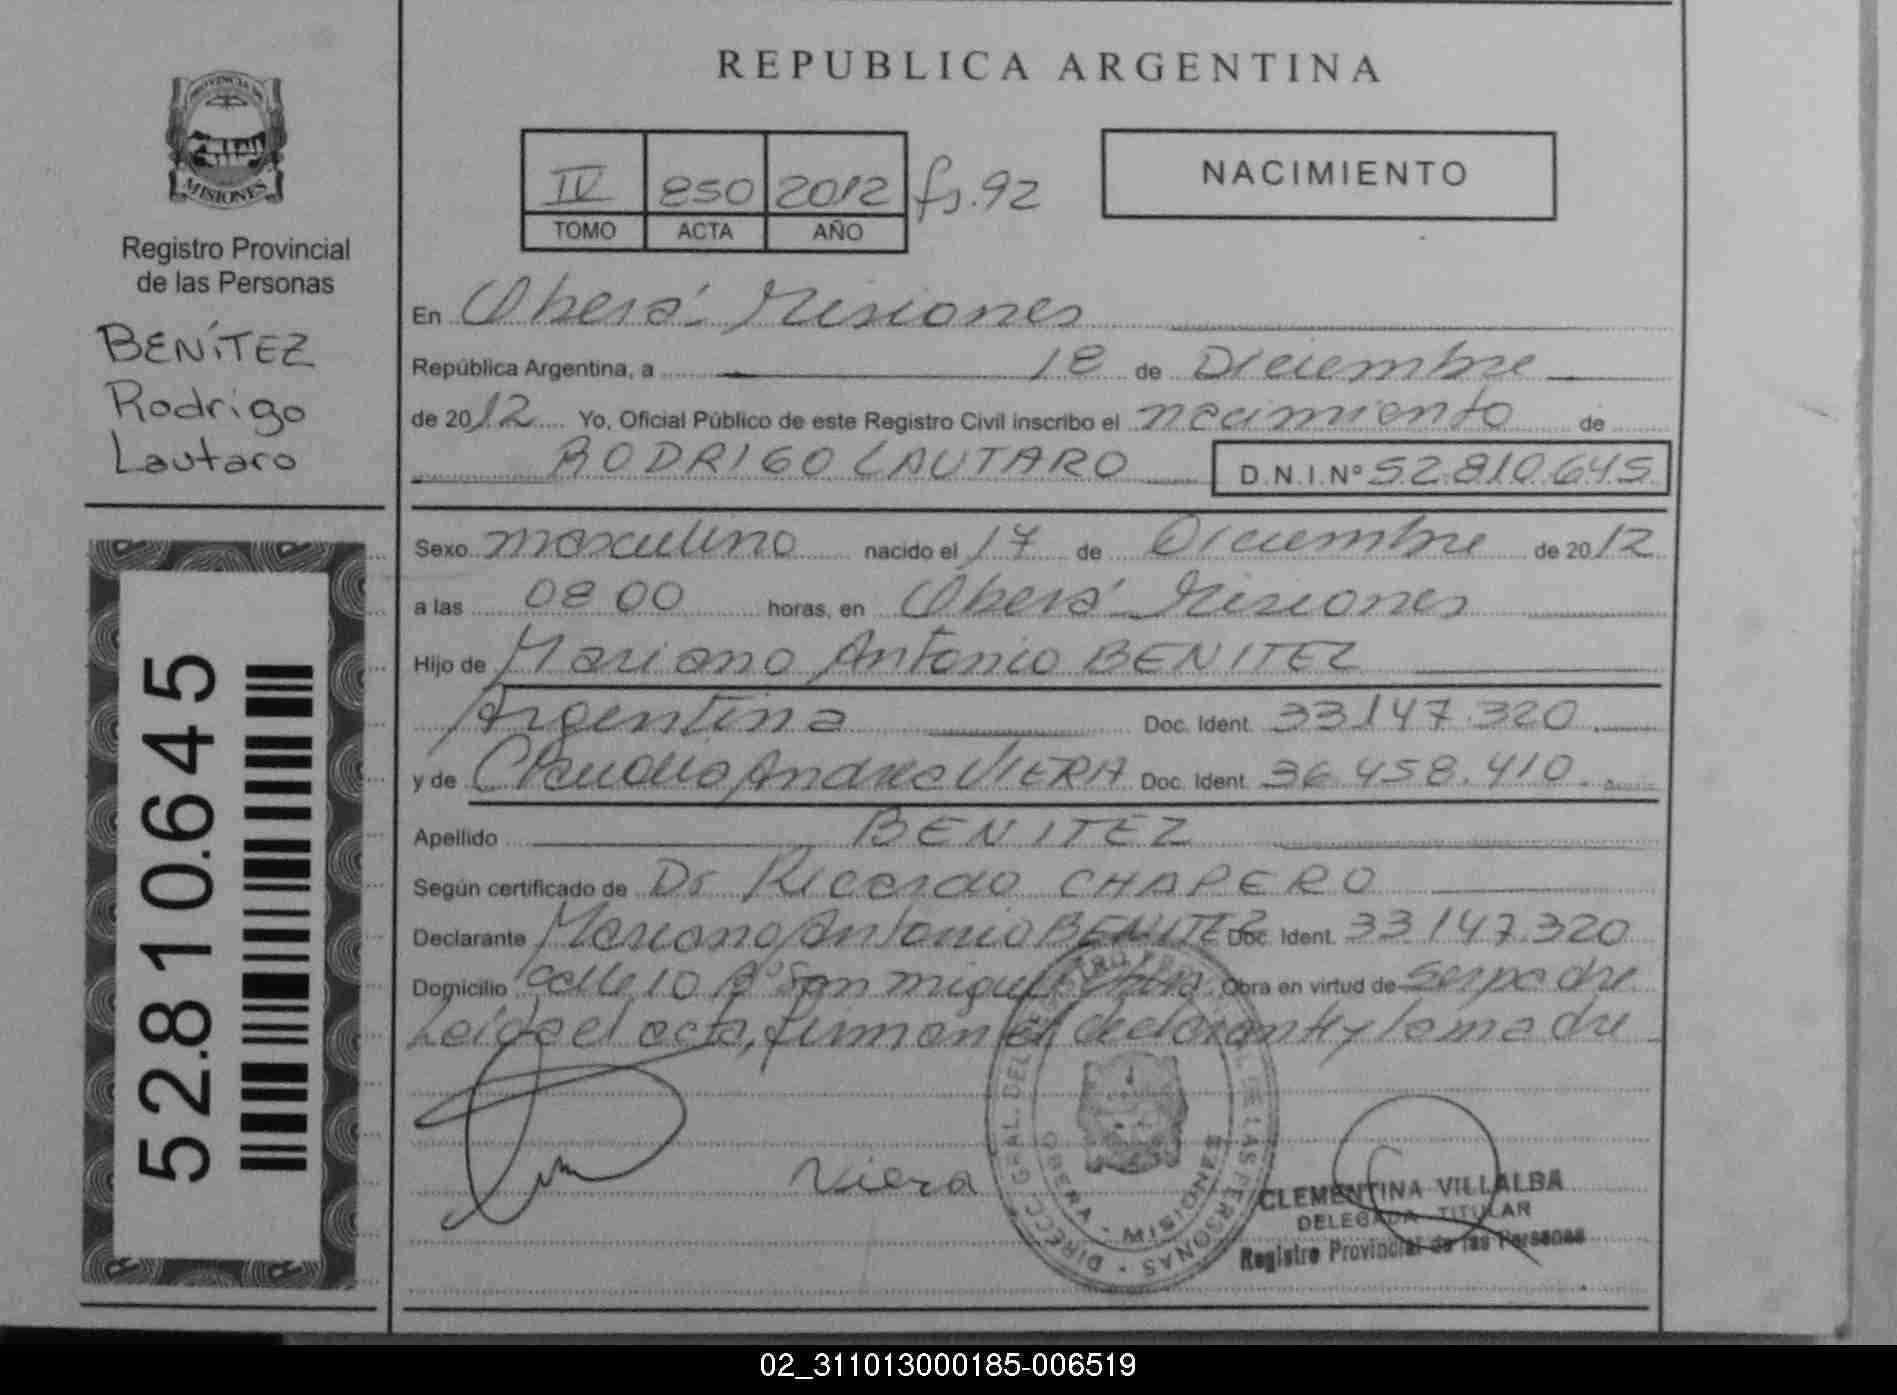 REPUBLICA ARGENTINA
PROVINCIA DE
MISIONES
Registro Provincial
de las Personas
BENÍTEZ
Rodrigo
Lautaro
IV 850 2012 fs. 92
TOMO ACTA AÑO
NACIMIENTO
En Oberá Misiones
República Argentina, a 18 de Diciembre
de 2012 Yo, Oficial Público de este Registro Civil inscribo el nacimiento de
RODRIGO LAUTARO D.N.I.Nº 52.810.645
Sexo masculino nacido el 17 de Diciembre de 2012
a las 08 00 horas, en Oberá Misiones
Hijo de Mariano Antonio BENITEZ
Argentina Doc. Ident. 33.147.320
y de Claudia Andrea VIERA Doc. Ident. 36.458.410
Apellido BENITEZ
Según certificado de Dr Ricardo CHAPERO
Declarante Mariano Antonio BENITEZ Doc. Ident. 33.147.320
Domicilio calle 10 Bº San Miguel Oberá Obra en virtud de ser padre
Leída el acta, firman el declarante y la madre
Viera
DIRECC. GRAL. DEL REGISTRO PROVINCIAL DE LAS PERSONAS
OBERA - MISIONES
CLEMENTINA VILLALBA
DELEGADA TITULAR
Registro Provincial de las Personas
52.810.645
02_311013000185-006519